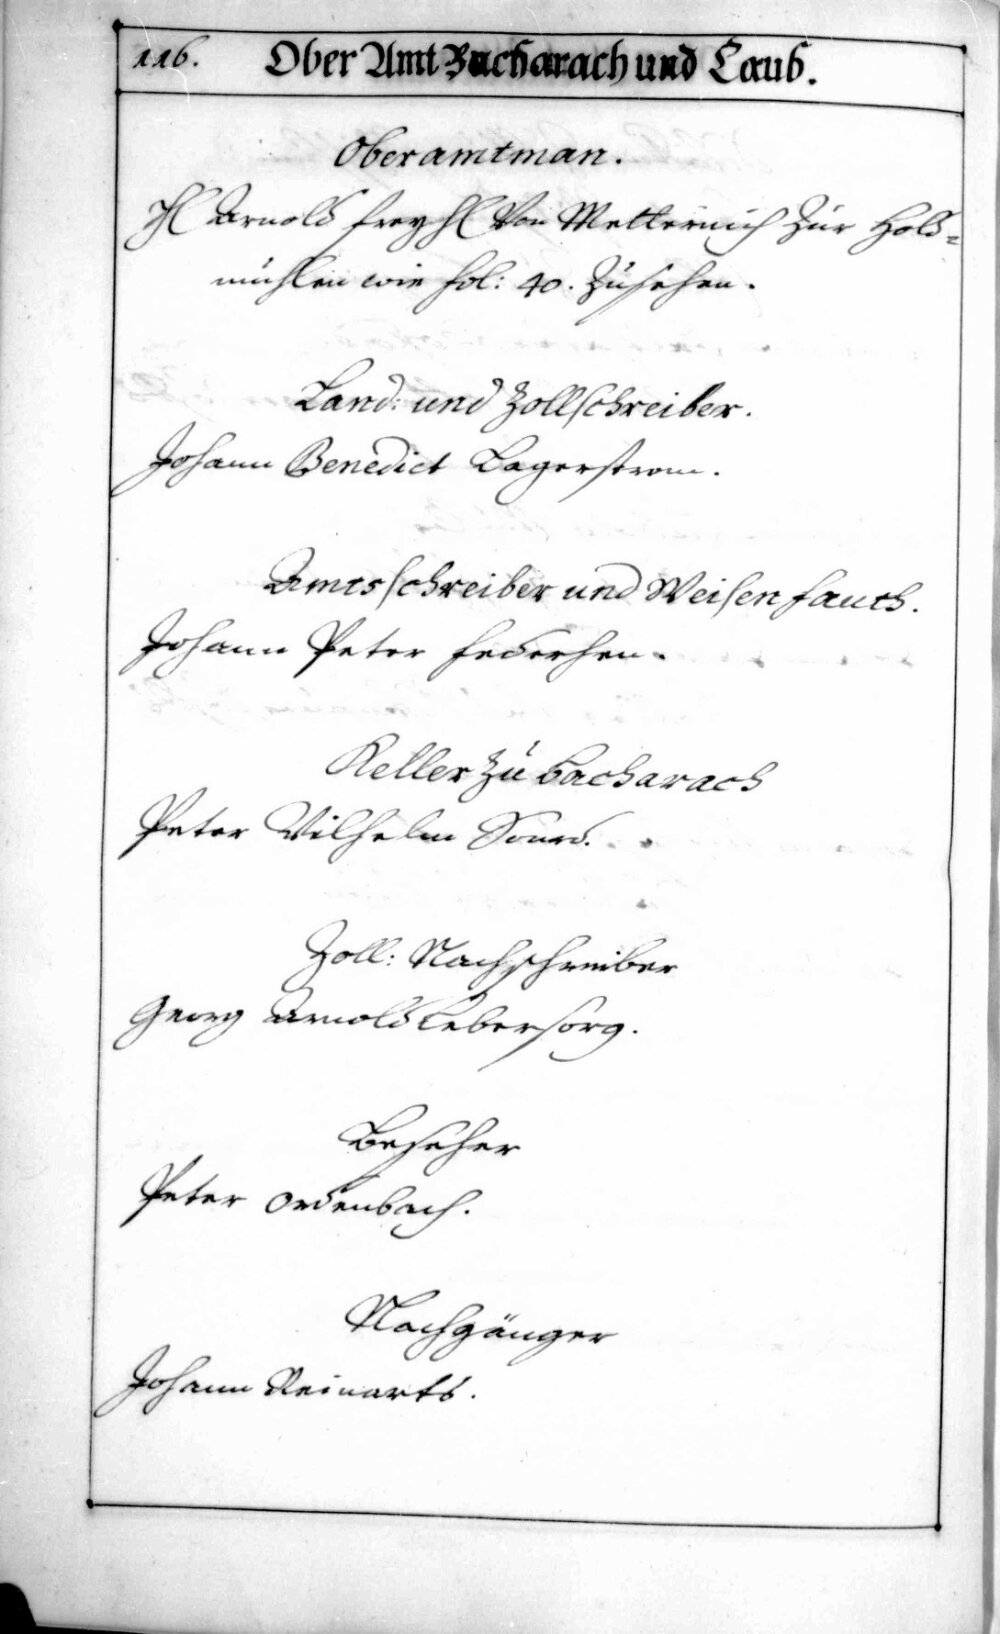 116. Ober Amt Bacharach und Caub.
Oberamtman.
H Arnold freyh Von Metternich Zur Hold=
mühlen wie fol: 40. Zusehen.
Land: und Zollschreiber.
Johann Benedict Lagerstrom.
Amtsschreiber und Weisenfauth.
Johann Peter Federhen.
Keller Zu Bacharach
Peter Wilhelm
Zoll: Nachschreiber
Georg Arnold Lebersorg.
Beseher
Peter Ordenbach.
Nachgänger
Johann Reinarts.